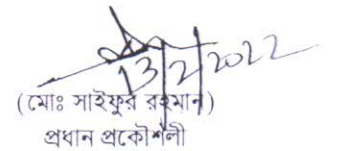 13/2/2022
(মোঃ সাইফুর রহমান)
প্রধান প্রকৌশলী